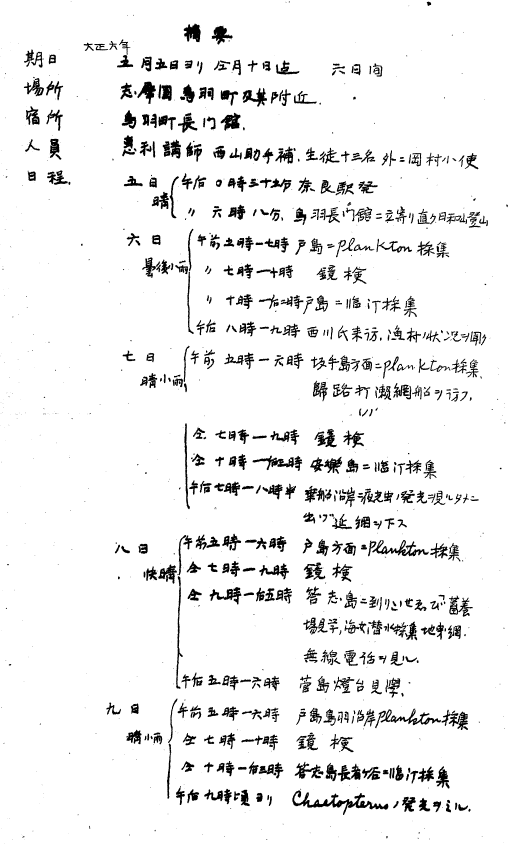 摘要
大正六年
期日 五月五日ヨリ仝月十日迄 六日間
場所 志摩國鳥羽町及其附近.
宿所 鳥羽町長門館.
人員 惠利講師 西山助手補.生徒十三名 外ニ岡村小使
日程. 五日 午后〇時三十五分 奈良駅発
晴 〃 六時八分. 鳥羽長門館ニ立寄リ直ク日和山登山
六日 午前五時一七時 戸島ニPlankton採集
曇後小雨 〃 七時一十時 鏡検
〃 十時一后三時 戸島ニ臨汀採集
午后八時一九時 西川氏来訪,漁村ノ状况ヲ聞ク
七日 午前五時一六時 坂手島方面ニplankton採集.
晴小雨 歸路打瀬網船ヲ行フ,
仝七時一九時 鏡検
仝十時一后三時 安樂島ニ臨汀採集
午后七時一八時半 乗船沿岸ニ夜光虫ノ発光ヲ見ルタメニ
出デ 延網ヲ下ス
八日 午前五時一六時 戸島方面ニPlankton採集
快晴 仝七時一九時 鏡検
仝九時一后五時 答志島ニ到リ いせゑび蓄養
場見学,海女潜水採集 地曳網.
無線電話ヲ見ル.
午后五時一六時 菅島燈台見學.
九日 午前五時一六時 戸島鳥羽沿岸Plankton採集
晴小雨 仝七時一十時 鏡検
仝十時一后三時 答志島長者ケ后ニ臨汀採集
午后九時頃ヨリ Chaetopterusノ発光ヲミル.